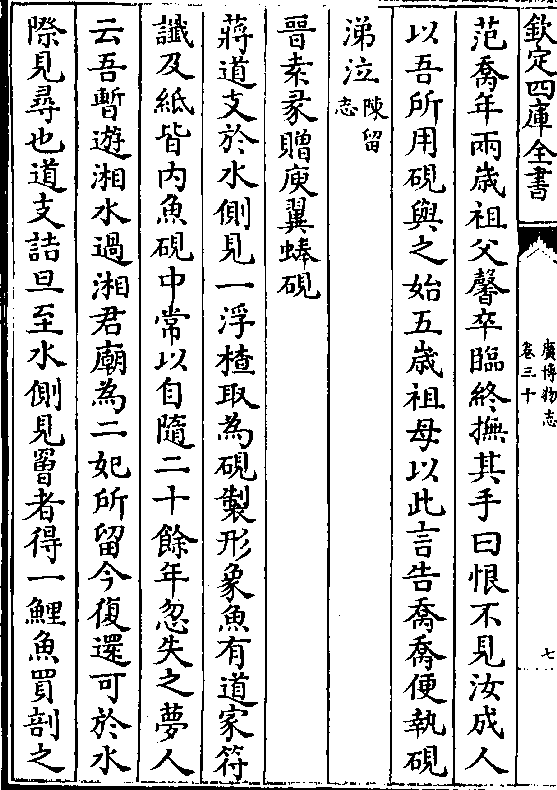 欽定四庫全書
廣博物志
卷三十
七
范喬年兩歳祖父馨卒臨終撫其手曰恨不見汝成人
以吾所用硯與之始五歳祖母以此言告喬喬便執硯
涕泣陳留志
晉素彖贈庾翼蜯硯
蔣道支於水側見一浮楂取為硯製形象魚有道家符
讖及紙皆内魚硯中常以自隨二十餘年忽失之夢人
云吾暫遊湘水過湘君廟為二妃所留今復還可於水
際見尋也道支詰旦至水側見罾者得一鯉魚買剖之